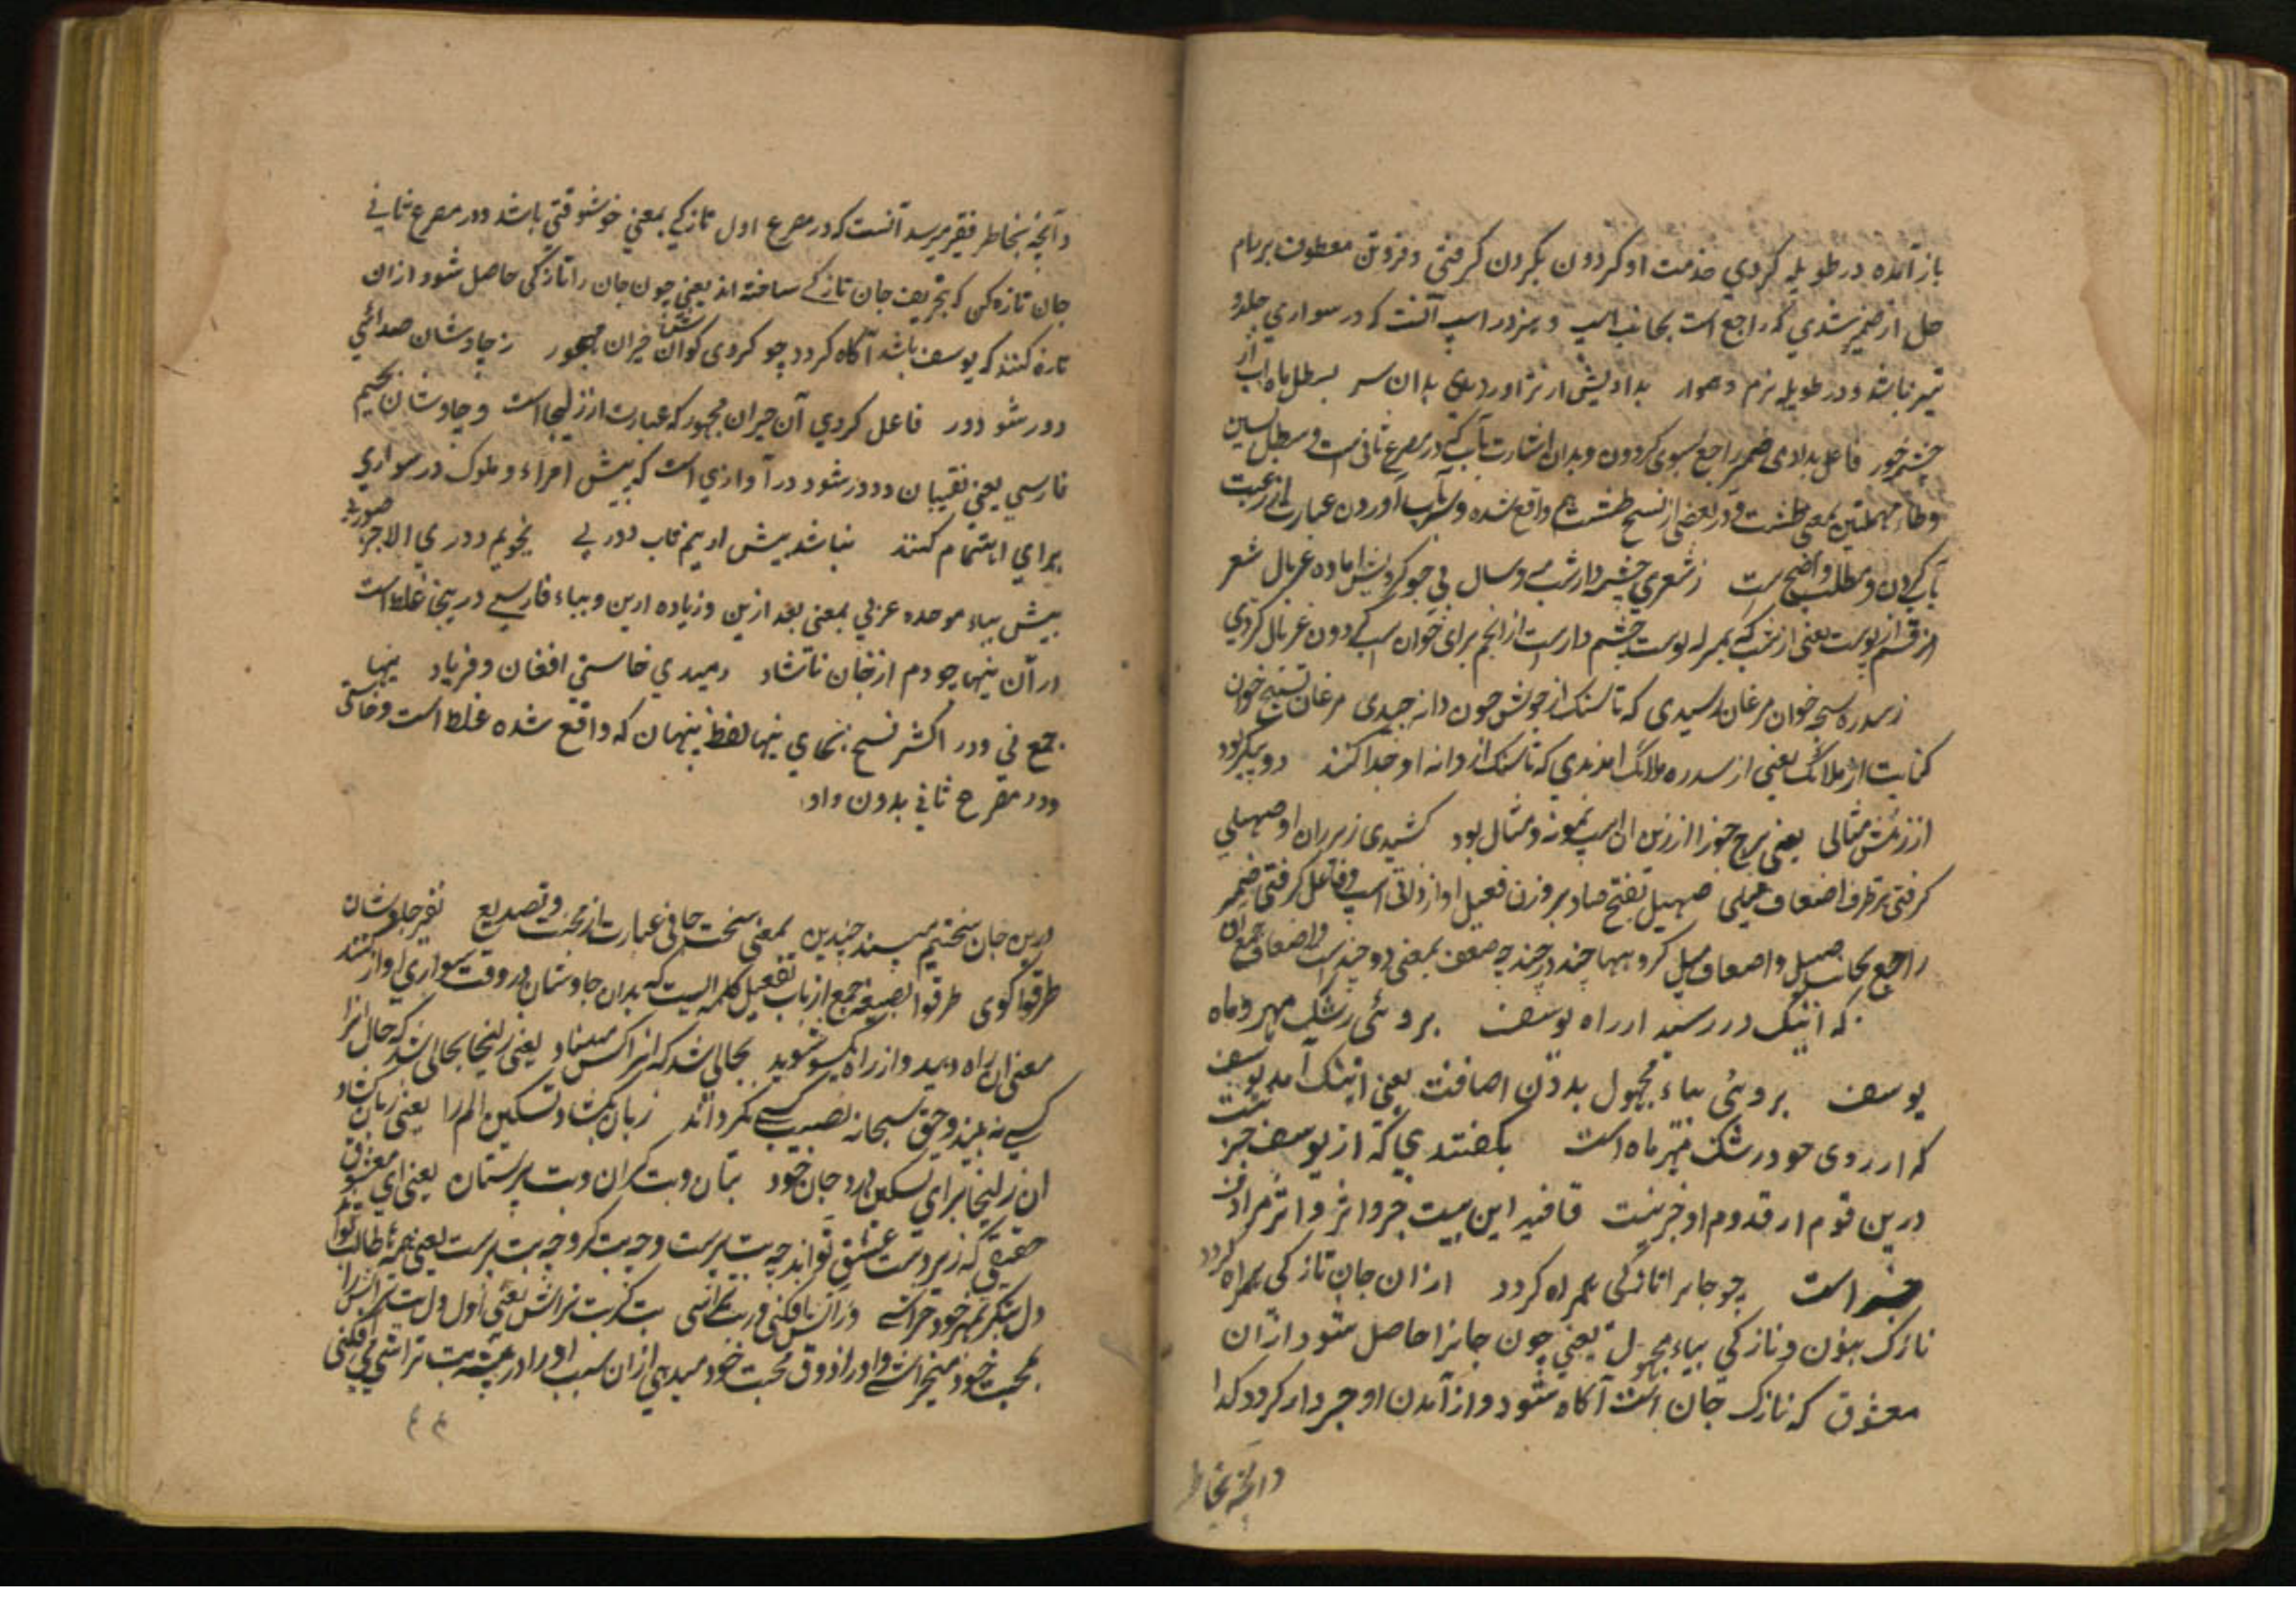 باز آمده در طویله کردي خدمت او کردون بکردن کرفتی و فروتن معطوف بر رام
حل از ضمیر شدي که راجع است بجانب اسپ و هنر در اسپ آنست که در سواري جلد و
تیز باشد و در طویله نرم و هموار بدادیش ار نژاوردی بدان سر بسطل ماه آب از
چشمه خور فاعل بدادی ضمیر راجع بسوی کردون و بدان اشارت بآب که در مصرع ثانی است و سطل بسین
و طاء مهملتین بمعنی طشت و در بعضی از نسخ طشت هم واقع شده
بآب کردن و مطلب واضح است ز شعری چشم دار شب و سال پی جو کردیش اماده غربال شعر
از قسم پوست یعنی از شب که بمنزله پوست چشم دار است از انجم برای خوان اسپ کردون غربال کردي
ز سدره سبحه خوان مرغان رسیدی که تا سنک از جوش چون دانه چیدی مرغان تسبیح خوان
کنایت از ملائک یعنی از سدره ملائک امدندي که تا سنک از دانه او جدا کنند دو پیکر بود
از زینش مثالی یعنی برج جوزا از زین ان اسپ نمونه و مثال بود کشیدی زیر ران او صهیلی
کرفتی هر طرف اضعاف میلی صهیل بفتح صاد بر وزن فعیل اواز دادن اسپ و فاعل کرفتی ضمیر
راجع بجانب صهیل و اضعاف میل کروهها چند در چند چه ضعف بمعنی دو چند است و اضعاف جمع آن
که اینک در رسید از راه یوسف بروئی رشک مهر و ماه
یوسف بروئی بیاء مجهول بدون اضافت یعنی اینک آمد یوسف
که از روی خود رشک مهر و ماه است بکفتندي که از یوسف خبر نیست
درین قوم از قدوم او خبر نیست قافیه این بیت خبر و اثر و اثر مرادف
خبر است چو جانرا تازکی همراه کردد از ان جان تازکی همراه کردد
نازک بنون و نازکي بیاء مجهول یعنی چون جانرا حاصل شود از ان
معشوق که نازک جان است آکاه شود و از آمدن او خبردار کردد کذا
وانچه بخاطر
وانچه بخاطر فقیر میرسد آنست که در مصرع اول تازکي بمعني خوشوقتي باشد و در مصرع ثاني
جان تازه کن که بتحریف جان تازکے ساخته اند یعني چون جان را تازکی حاصل شود از ان
تازه کننده که یوسف باشد آکاه کردد چو کردی کوان حیران مهجور ز چاوشان صدائي
دور شو دور فاعل کردي آن حیران مهجور که عبارت از زلیخا است و چاوشان بجیم
فارسي یعني نقیبان و دور شو دور آوازي است که پیش امراء و ملوک در سواري
براي اهتمام کنند نباشد بیش ازینم تاب دوري نجویم دوري الا جز صبوري
بیش بباء موحده عربي بمعني بعد ازین و زیاده ازین و بباء فارسي درینجا غلط است
در آن نیها چو دم از جان ناشاد دمیدي خاستي افغان و فریاد نیها
جمع نی و در اکثر نسخ بجاي نیها لفظ پنهان که واقع شده غلط است و خاستي
و در مصرع ثاني بدون واو
درین جان سختیم مپسند چندین بمعني سخت جاني عبارت از محنت و تصدیع نفیر چاوشان
طرقوا کوی طرقوا بصیغه جمع از باب تفعیل کلمه ایست که بدان چاوشان در وقت سواري اواز کنند
معنی ان راه دهید و از راه یکسو شوید بحالی شد که انرا کس مبیناد یعنی زلیخا بحالی شد که حال انرا
کسي نه بیند و حق سبحانه نصیب کسي نکرداند زبان بکشاد تسکین الم را یعنی زبان کشاد
ان زلیخا برای تسکین درد جان خود بتان و بت کران و بت پرستان یعني اي معشوق
حقیقي که زیردست عشق تو اند چه بت پرست و چه بت کر و چه بت یعني همه طالب تو اند
دل بتکر بمهر خود خراشی
بمحبت خود میخراشے و اورا ذوق محبت خود میدهي از ان سبب او را در پیشه بت تراشي مي افکني